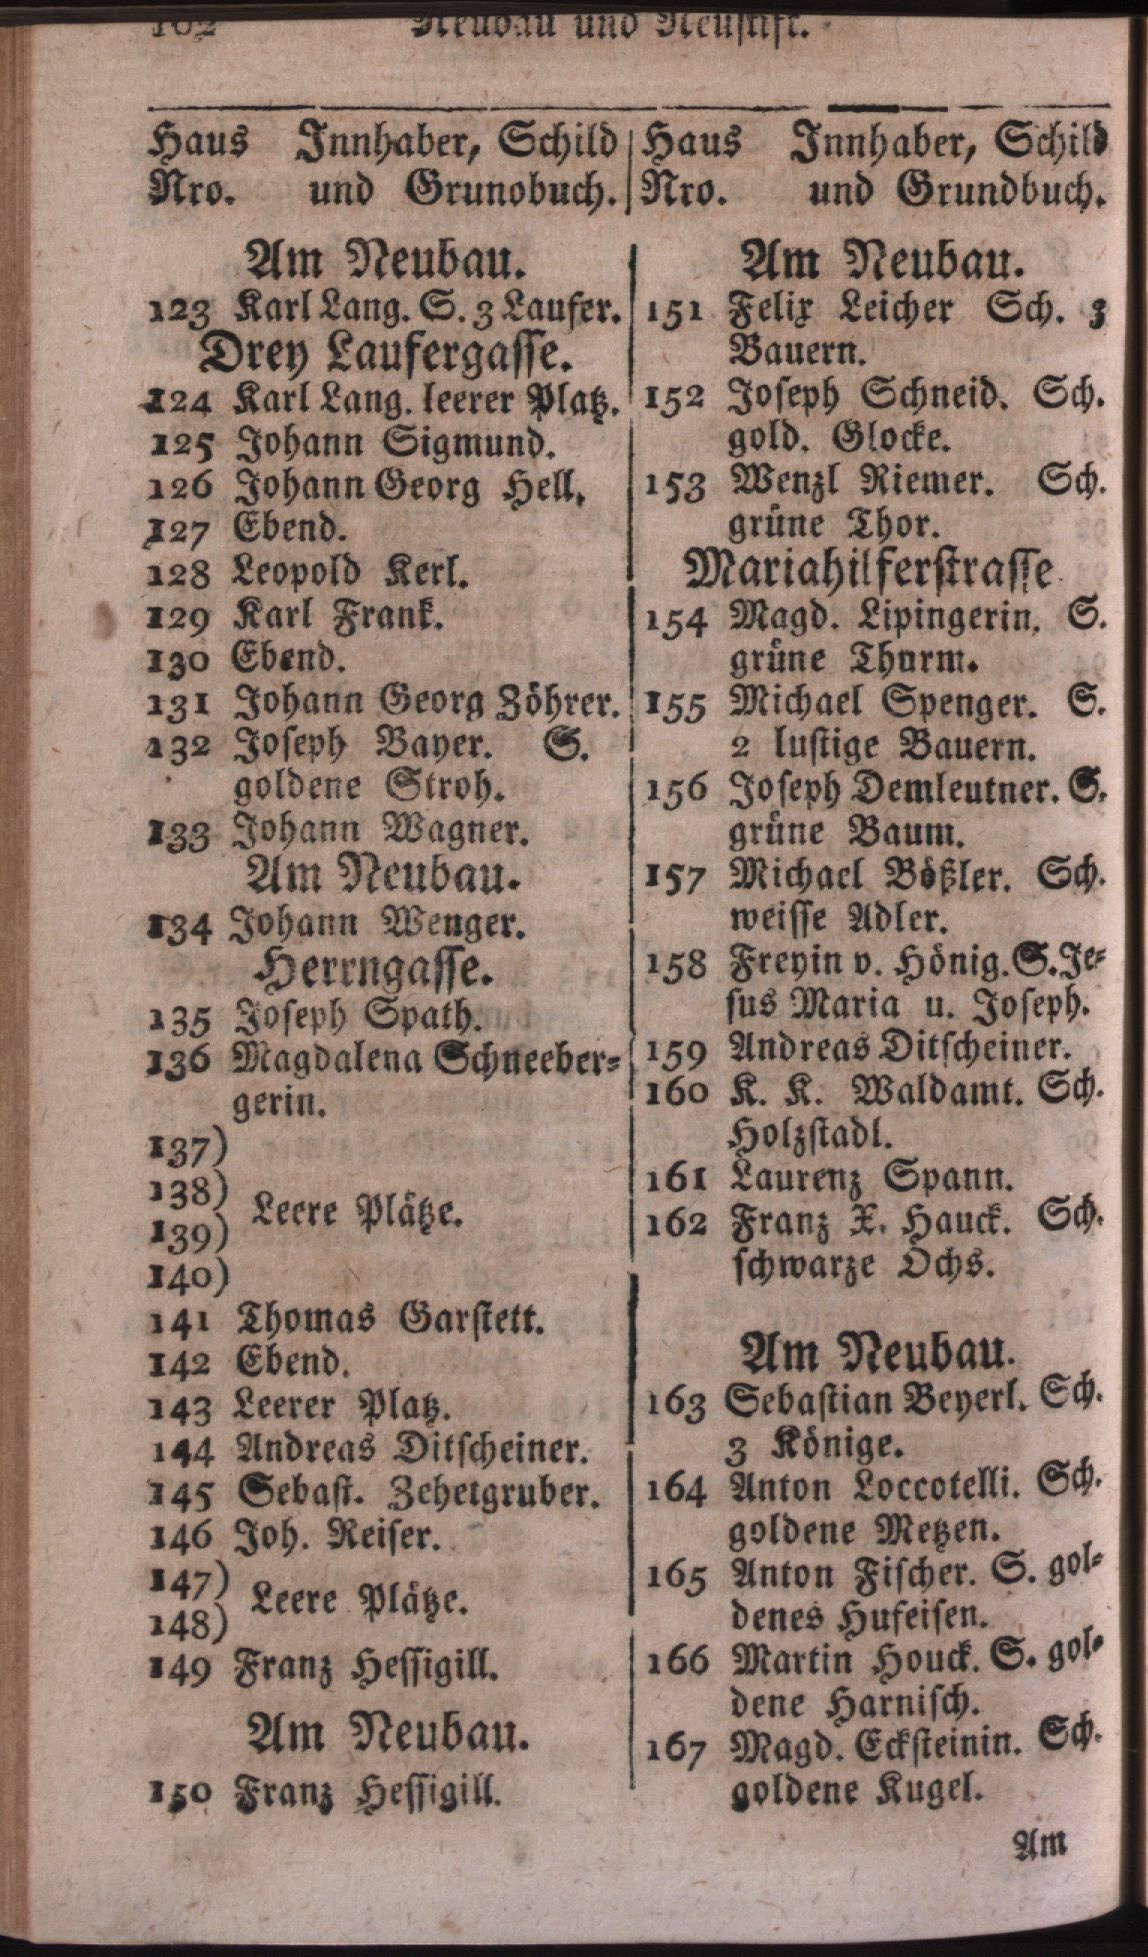 162 Neubau und Neustift.
Haus Innhaber, Schild
Nro. und Grunobuch.
Am Neubau.
123 Karl Lang. S. 3 Laufer.
Drey Laufergasse.
124 Karl Lang. leerer Platz.
125 Johann Sigmund.
126 Johann Georg Hell.
127 Ebend.
128 Leopold Kerl.
129 Karl Frank.
130 Ebend.
131 Johann Georg Zöhrer.
132 Joseph Bayer. S.
goldene Stroh.
133 Johann Wagner.
Am Neubau.
134 Johann Wenger.
Herrngasse.
135 Joseph Spath.
136 Magdalena Schneeber-
gerin.
137)
138)
Leere Plätze.
139)
140)
141 Thomas Garstett.
142 Ebend.
143 Leerer Platz.
144 Andreas Ditscheiner.
145 Sebast. Zehetgruber.
146 Joh. Reiser.
147)
Leere Plätze.
148)
149 Franz Hessigill.
Am Neubau.
150 Franz Hessigill.
Haus Innhaber, Schild
Nro. und Grundbuch.
Am Neubau.
151 Felix Leicher Sch. 3
Bauern.
152 Joseph Schneid. Sch.
gold. Glocke.
153 Wenzl Riemer. Sch.
grüne Thor.
Mariahilferstrasse
154 Magd. Lipingerin. S.
grüne Thurm.
155 Michael Spenger. S.
2 lustige Bauern.
156 Joseph Demleutner. S.
grüne Baum.
157 Michael Bößler. Sch.
weisse Adler.
158 Freyin v. Hönig. S. Je-
sus Maria u. Joseph.
159 Andreas Ditscheiner.
160 K. K. Waldamt. Sch.
Holzstadl.
161 Laurenz Spann.
162 Franz X. Hauck. Sch.
schwarze Ochs.
Am Neubau.
163 Sebastian Beyerl. Sch.
3 Könige.
164 Anton Loccotelli. Sch.
goldene Metzen.
165 Anton Fischer. S. gol-
denes Hufeisen.
166 Martin Houck. S. gol-
dene Harnisch.
167 Magd. Ecksteinin. Sch.
goldene Kugel.
Am